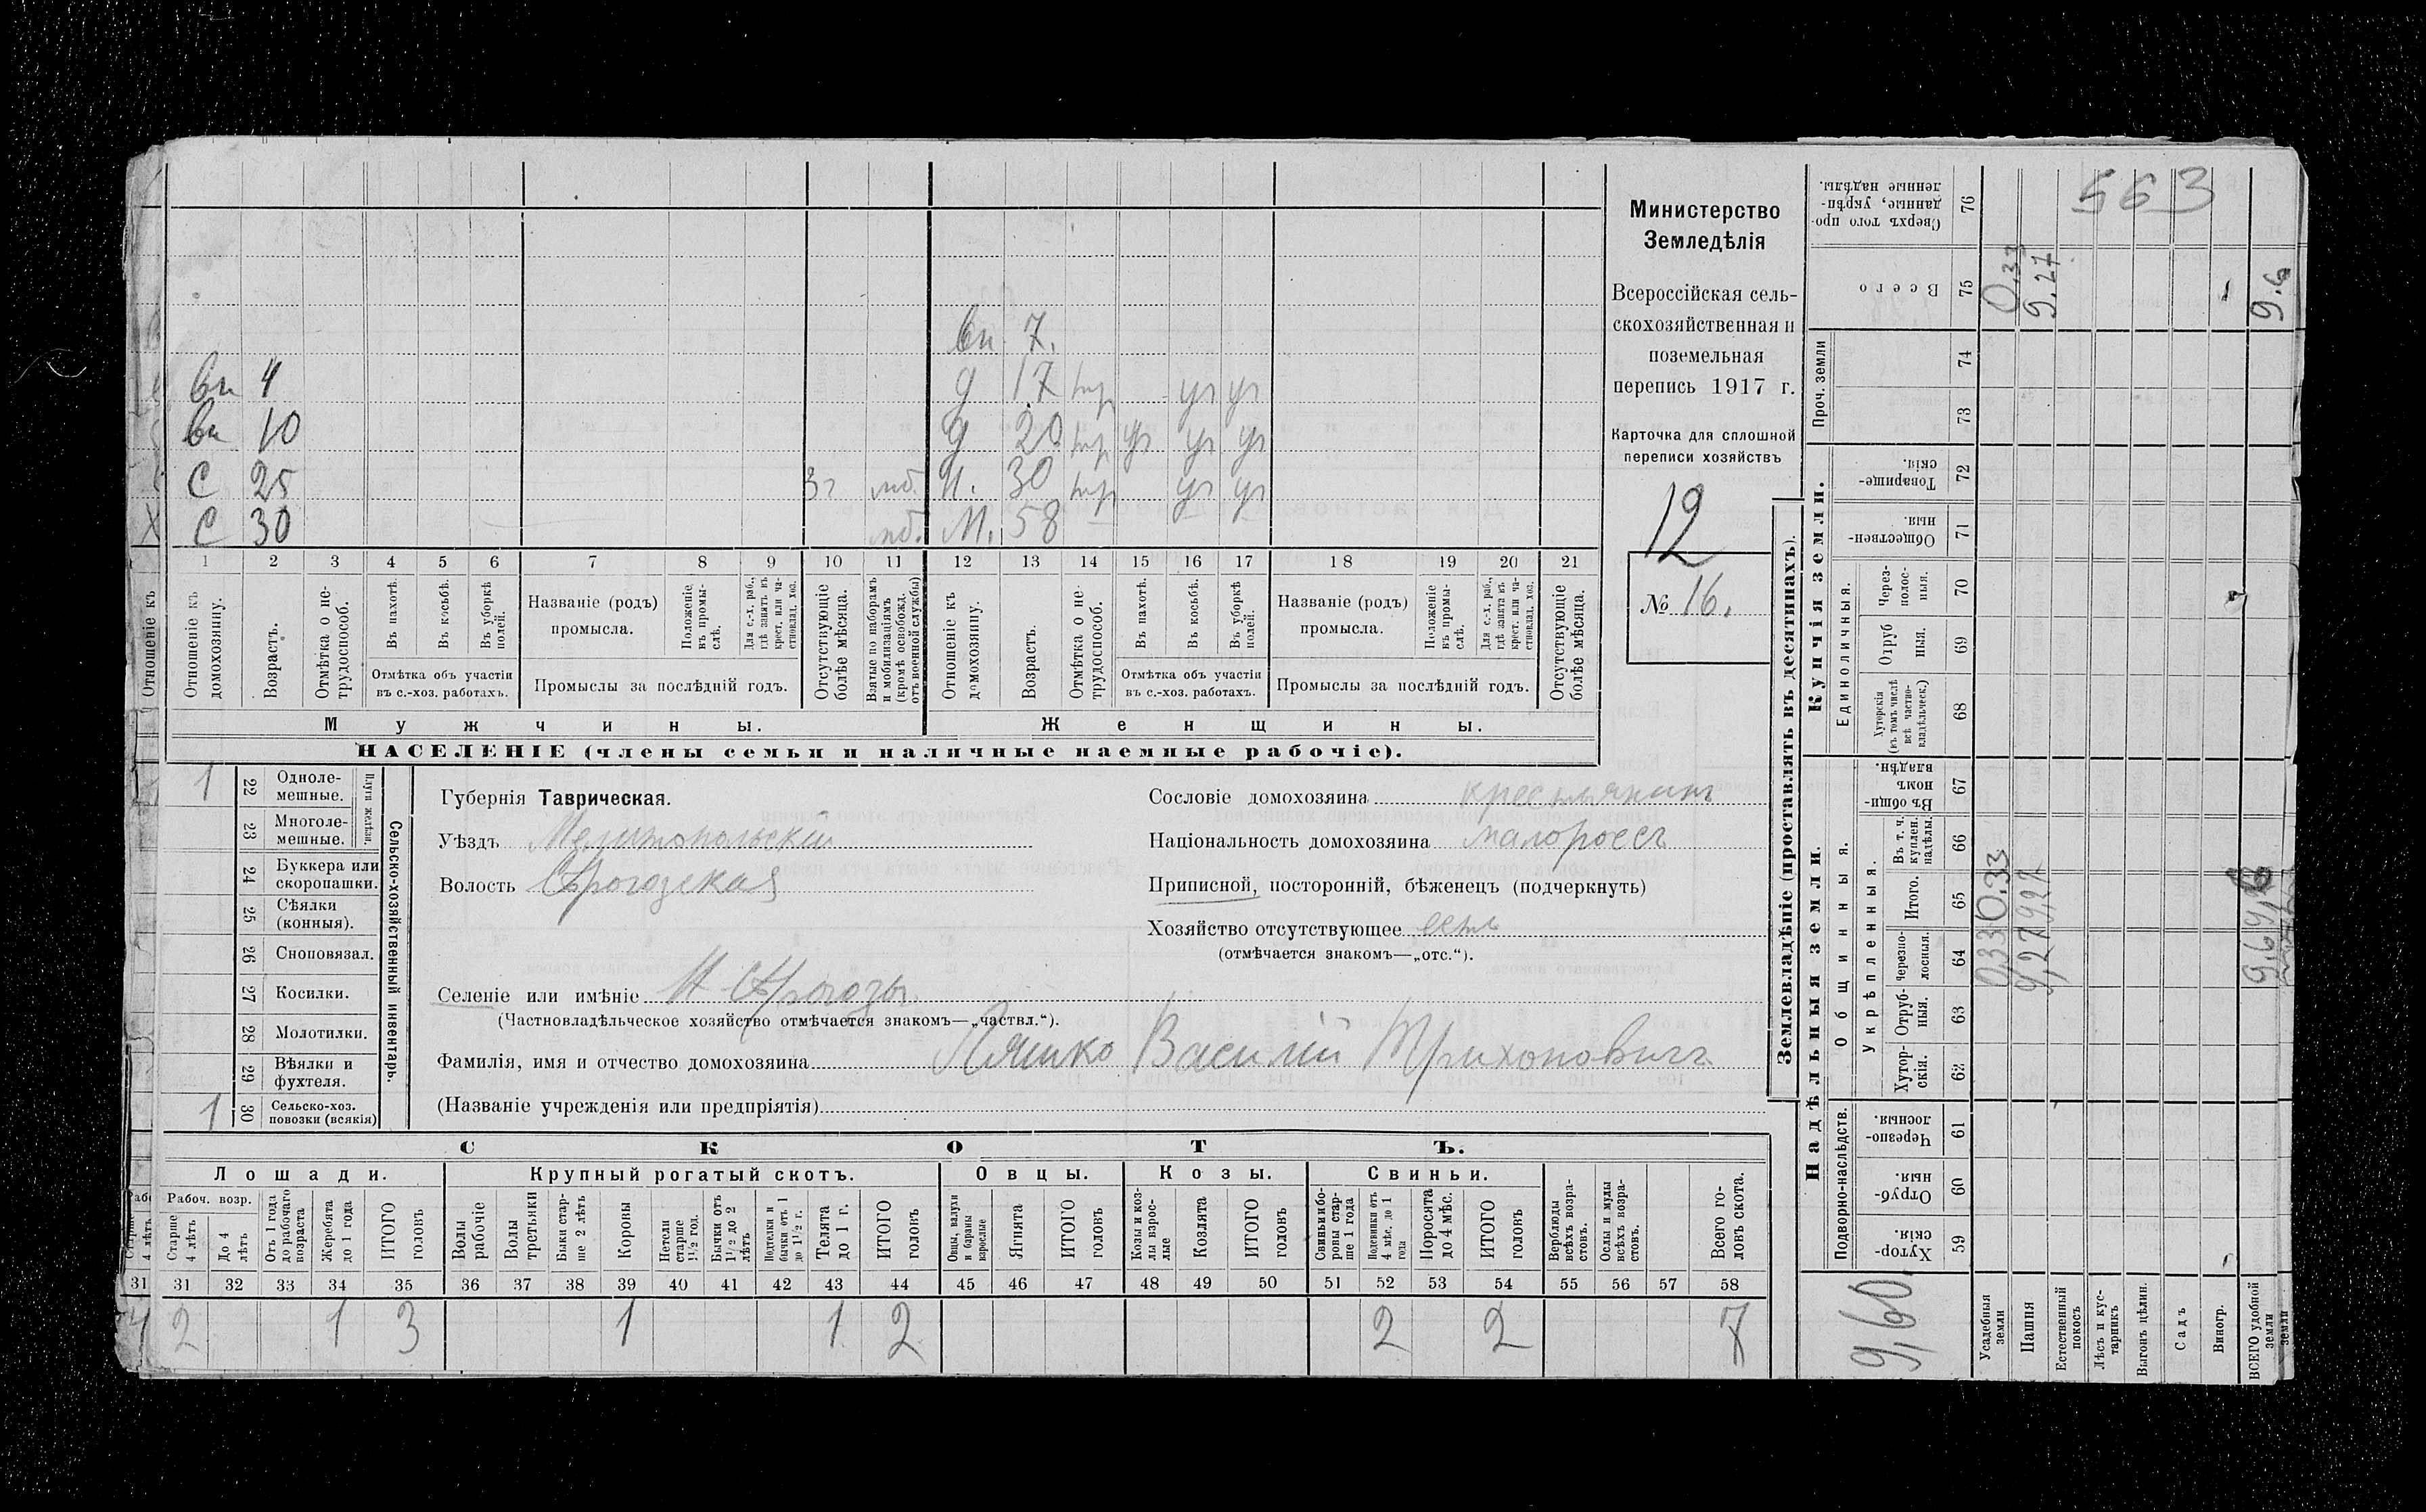 вн. 7.
вн 4 д 17 нр уг уг
вн 10 д 20 нр уг уг уг
С 25 мб. Н. 30 нр уг уг
С 30 мб. М. 58
1 2 3 4 5 6 7 8 9 10 11 12 13 14 15 16 17 18 19 20 21
Отношеніе къ
Отношеніе къ домохозяину.
Возрастъ.
Отмѣтка о не-трудоспособ.
Въ пахотѣ.
Въ косьбѣ.
Въ уборкѣ полей.
Отмѣтка объ участіи
въ с.-хоз. работахъ.
Названіе (родъ)
промысла.
Положеніе въ промы-слѣ.
Для с.-х. раб., гдѣ занятъ въ крест. или ча-стновлад. хоз.
Промыслы за послѣдній годъ.
Отсутствующіе болѣе мѣсяца.
Взятые по наборамъ и мобилизаціямъ (кромѣ освобожд. отъ военной службы)
Отношеніе къ домохозяину.
Возрастъ.
Отмѣтка о не-трудоспособ.
Въ пахотѣ.
Въ косьбѣ.
Въ уборкѣ полей.
Отмѣтка объ участіи
въ с.-хоз. работахъ.
Названіе (родъ)
промысла.
Положеніе въ промы-слѣ.
Для с.-х. раб., гдѣ занята въ крест. или ча-стновлад. хоз.
Промыслы за послѣдній годъ.
Отсутствующіе болѣе мѣсяца.
Мужчины. Женщины.
НАСЕЛЕНІЕ (члены семьи и наличные наемные рабочіе).
Министерство
Земледѣлія
Всероссійская сель-
скохозяйственная и
поземельная
перепись 1917 г.
Карточка для сплошной
переписи хозяйствъ
12
№ 16.
1 22 Одноле-мешные.
23 Многоле-мешные.
Плуги желѣзн.
24 Буккера или скоропашки.
25 Сѣялки (конныя).
26 Сноповязал.
27 Косилки.
28 Молотилки.
29 Вѣялки и фухтеля.
1 30 Сельско-хоз. повозки (всякія)
Сельско-хозяйственный инвентарь.
Губернія Таврическая.
Уѣздъ Мелитопольскій
Волость Сѣрогозская
Селеніе или имѣніе Н Сѣрогозы.
(Частновладѣльческое хозяйство отмѣчается знакомъ—„частвл.“).
Фамилія, имя и отчество домохозяина Ляшко Василій Трихоновичъ
(Названіе учрежденія или предпріятія)
Сословіе домохозяина крестьянинъ
Національность домохозяина малороссъ
Приписной, посторонній, бѣженецъ (подчеркнуть)
Хозяйство отсутствующее есть
(отмѣчается знакомъ—„отс.“).
СКОТЪ.
Лошади. Крупный рогатый скотъ. Овцы. Козы. Свиньи.
Рабоч. возр.
Старше 4 лѣтъ
До 4 лѣтъ
Отъ 1 года до рабочаго возраста
Жеребята до 1 года
ИТОГО головъ
Волы рабочіе
Волы третьяки
Быки стар-ше 2 лѣтъ
Коровы
Нетели старше 1½ год.
Бычки отъ 1½ до 2 лѣтъ
Подтелки и бычки отъ 1 до 1½ г.
Телята до 1 г.
ИТОГО головъ
Овцы, валухи и бараны взрослые
Ягнята
ИТОГО головъ
Козы и коз-лы взрос-лые
Козлята
ИТОГО головъ
Свиньи и бо-ровы стар-ше 1 года
Подсвинки отъ 4 мѣс. до 1 года
Поросята до 4 мѣс.
ИТОГО головъ
Верблюды всѣхъ возра-стовъ.
Ослы и мулы всѣхъ возра-стовъ.
Всего го-ловъ скота.
31 31 32 33 34 35 36 37 38 39 40 41 42 43 44 45 46 47 48 49 50 51 52 53 54 55 56 57 58
4 2 1 3 1 1 2 2 2 7
Землевладѣніе (проставлять въ десятинахъ).
Надѣльныя земли. Купчія земли.
Подворно-наслѣдств.
Общинныя.
Укрѣпленныя.
Единоличныя.
Проч. земли
Хутор-скія. 59
Отруб-ныя. 60
Черезпо-лосныя. 61
Хутор-скія. 62
Отруб-ныя. 63
Черезпо-лосныя. 64
Итого. 65
Въ т. ч. куплен. надѣлы. 66
Въ общин-номъ владѣн. 67
Хуторскія (въ томъ числѣ всѣ частно-владѣльческ.) 68
Отруб ныя. 69
Через-полос-ныя. 70
Обществен-ныя. 71
Товарище-скія. 72
73
74
Всего 75
Сверхъ того про-данные, укрѣп-ленные надѣлы. 76
563
Усадебныя земли 0,33 0.33 0.33
Пашня 9,27 9,27 9.27
Естественный покосъ
Лѣсъ и кус-тарникъ
Выгонъ цѣлин.
Садъ
Виногр.
ВСЕГО удобной земли 9.6 9.6
9,60